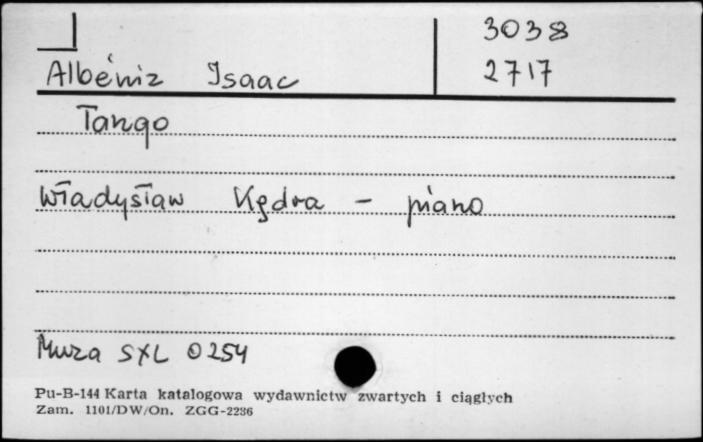 3038
Albéniz Isaac 2717
Tango
Władysław Kędra - piano
Muza SXL 0254
Pu-B-144 Karta katalogowa wydawnictw zwartych i ciągłych
Zam. 1101/DW/On. ZGG-2236